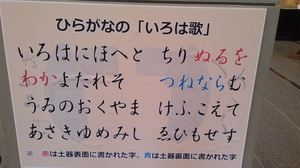 ひらがなの「いろは歌」
いろはにほへと ちりぬるを
わかよたれそ つねならむ
うゐのおくやま けふこえて
あさきゆめみし ゑひもせす
※ 赤は土器表面に書かれた字、青は土器裏面に書かれた字